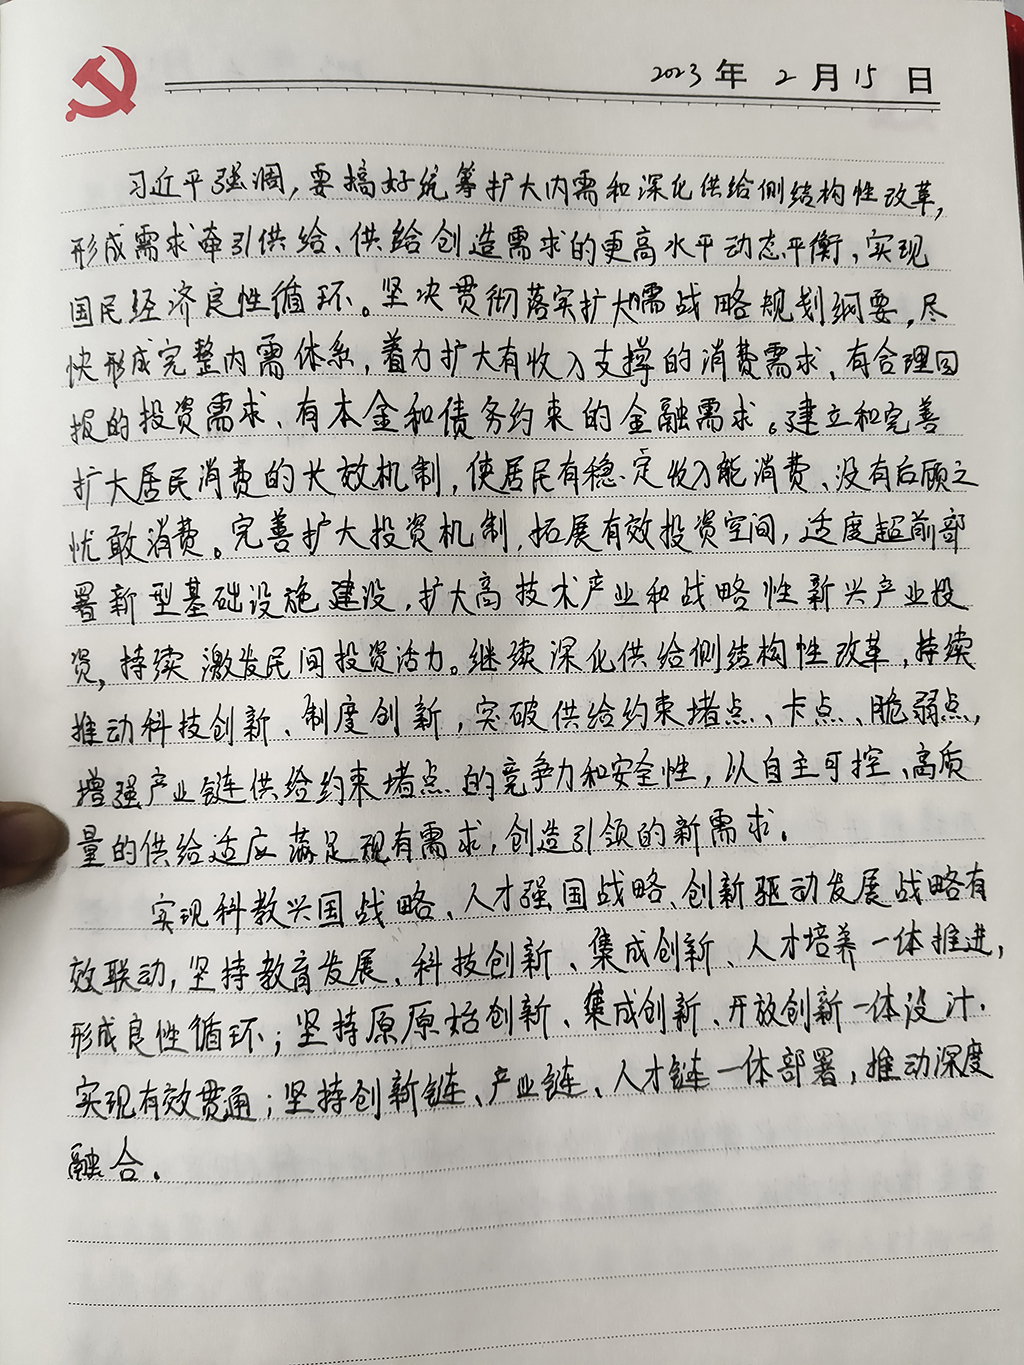 2023年 2月15日
习近平强调，要搞好统筹扩大内需和深化供给侧结构性改革，
形成需求牵引供给、供给创造需求的更高水平动态平衡，实现
国民经济良性循环。坚决贯彻落实扩大内需战略规划纲要，尽
快形成完整内需体系，着力扩大有收入支撑的消费需求、有合理回
报的投资需求、有本金和债务约束的金融需求。建立和完善
扩大居民消费的长效机制，使居民有稳定收入能消费、没有后顾之
忧敢消费。完善扩大投资机制，拓展有效投资空间，适度超前部
署新型基础设施建设，扩大高技术产业和战略性新兴产业投
资，持续激发民间投资活力。继续深化供给侧结构性改革，持续
推动科技创新、制度创新，突破供给约束堵点、卡点、脆弱点，
增强产业链供给约束堵点的竞争力和安全性，以自主可控、高质
量的供给适应满足现有需求，创造引领的新需求。
实现科教兴国战略、人才强国战略、创新驱动发展战略有
效联动，坚持教育发展、科技创新、集成创新、人才培养一体推进，
形成良性循环；坚持原原始创新、集成创新、开放创新一体设计，
实现有效贯通；坚持创新链、产业链、人才链一体部署，推动深度
融合。